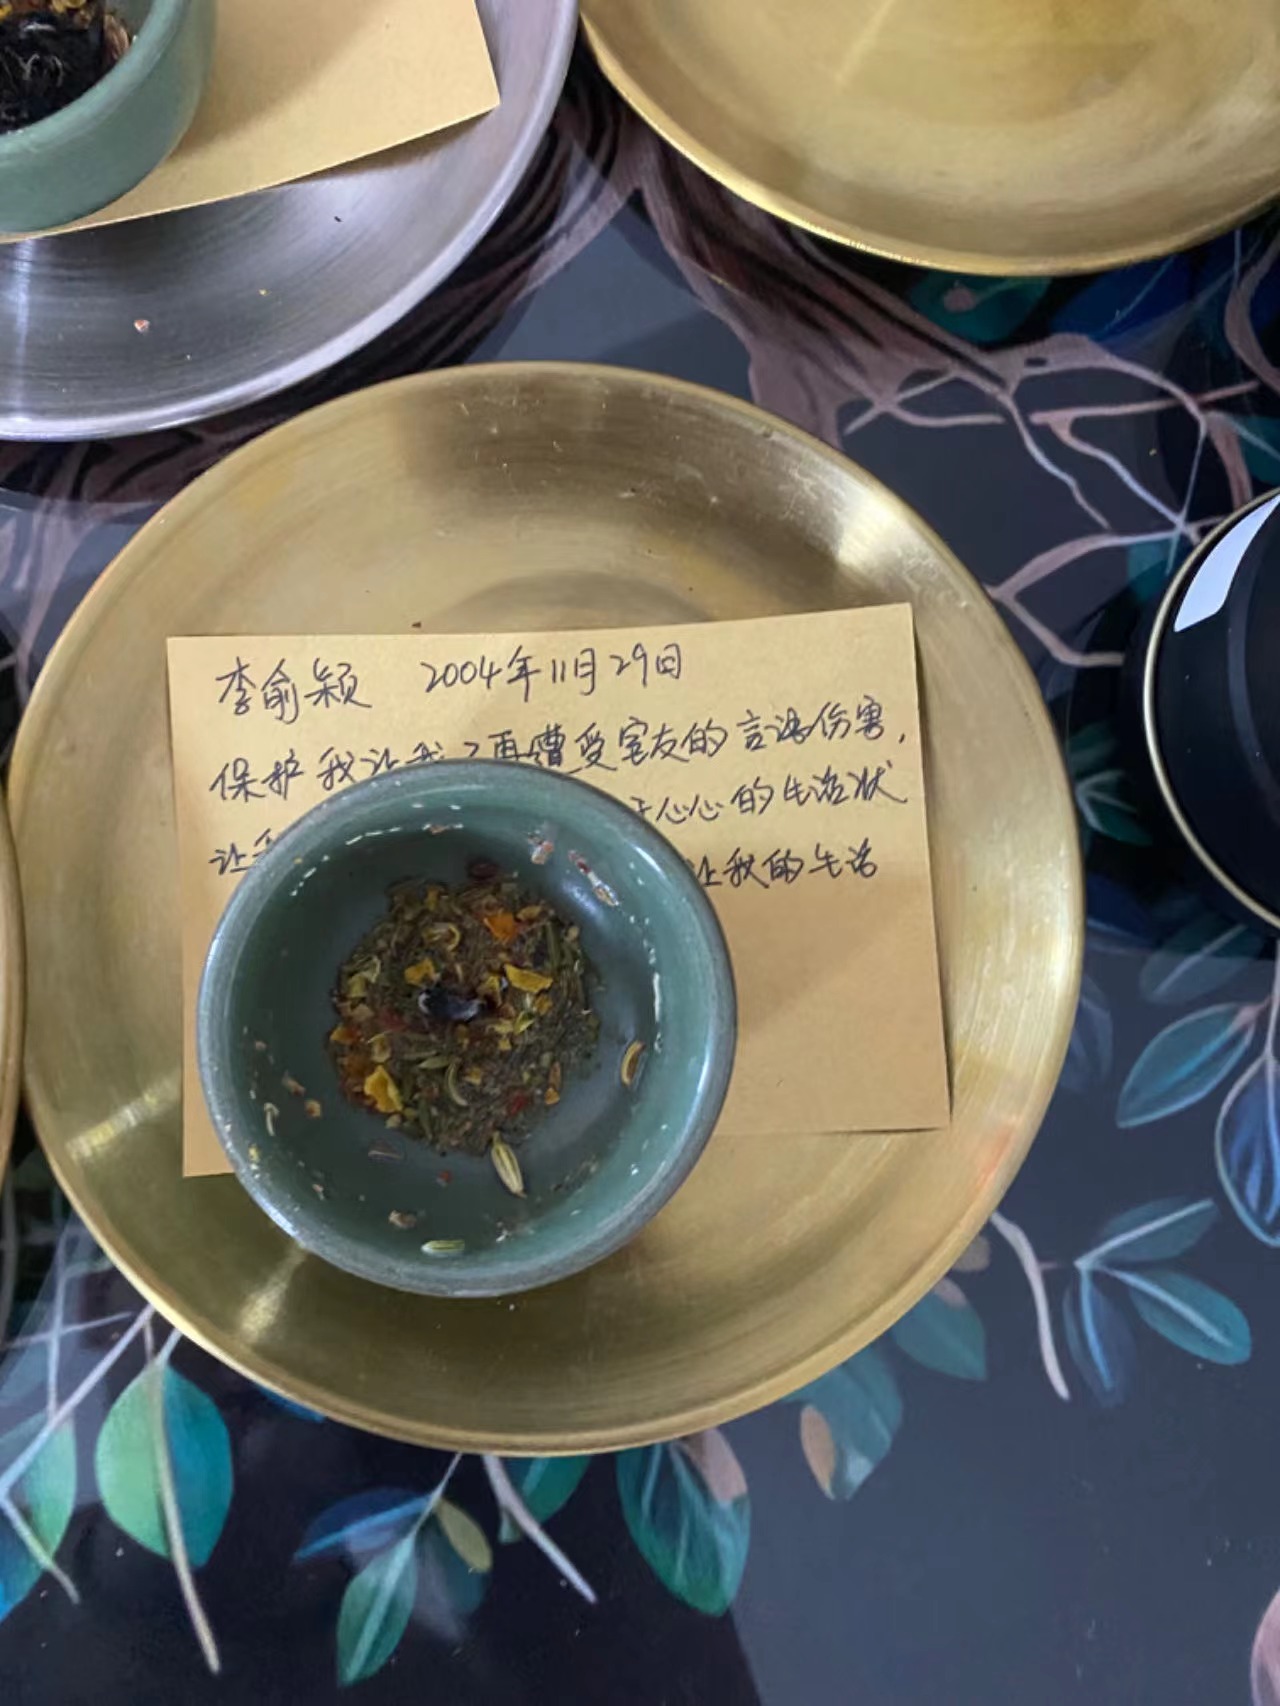 李俞颖 2004年11月29日
保护我让我不再遭受室友的言语伤害,
让我 心心的生活状
让我的生活